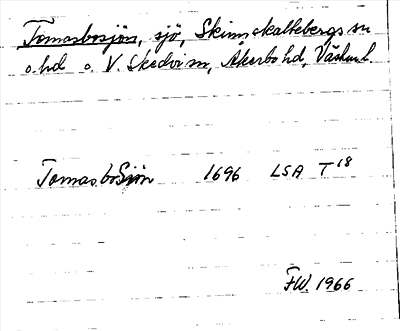 Tomasbosjön, sjö, Skinnskattebergs sn
o. hd o. V. Skedvi sn, Åkerbo hd, Västml.
Tomasbosjön 1696 LSA T 18
FW. 1966